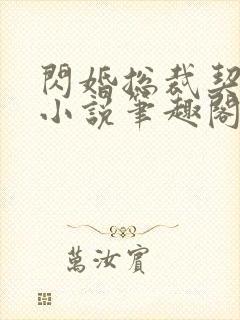 閃婚総裁契
小説筆趣閣
萬汝賓